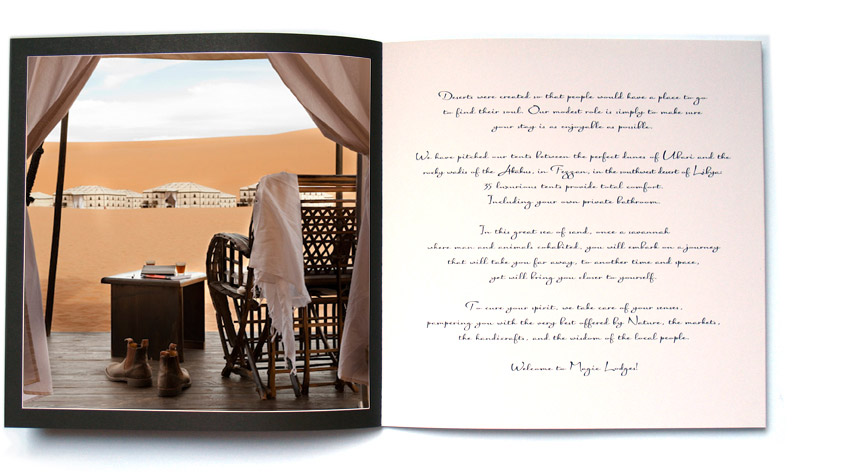 Deserts were created so that people would have a place to go
to find their soul. Our modest role is simply to make sure
your stay is as enjoyable as possible.
We have pitched our tents between the perfect dunes of Ubari and the
rocky wadis of the Akakus, in Fezzan, in the southwest desert of Libya:
35 luxurious tents provide total comfort.
Including your own private bathroom.
In this great sea of sand, once a savannah
where man and animals cohabited, you will embark on a journey
that will take you far away, to another time and space,
yet will bring you closer to yourself.
To cure your spirit, we take care of your senses,
pampering you with the very best offered by Nature, the markets,
the handicrafts, and the wisdom of the local people.
Welcome to Magic Lodges!